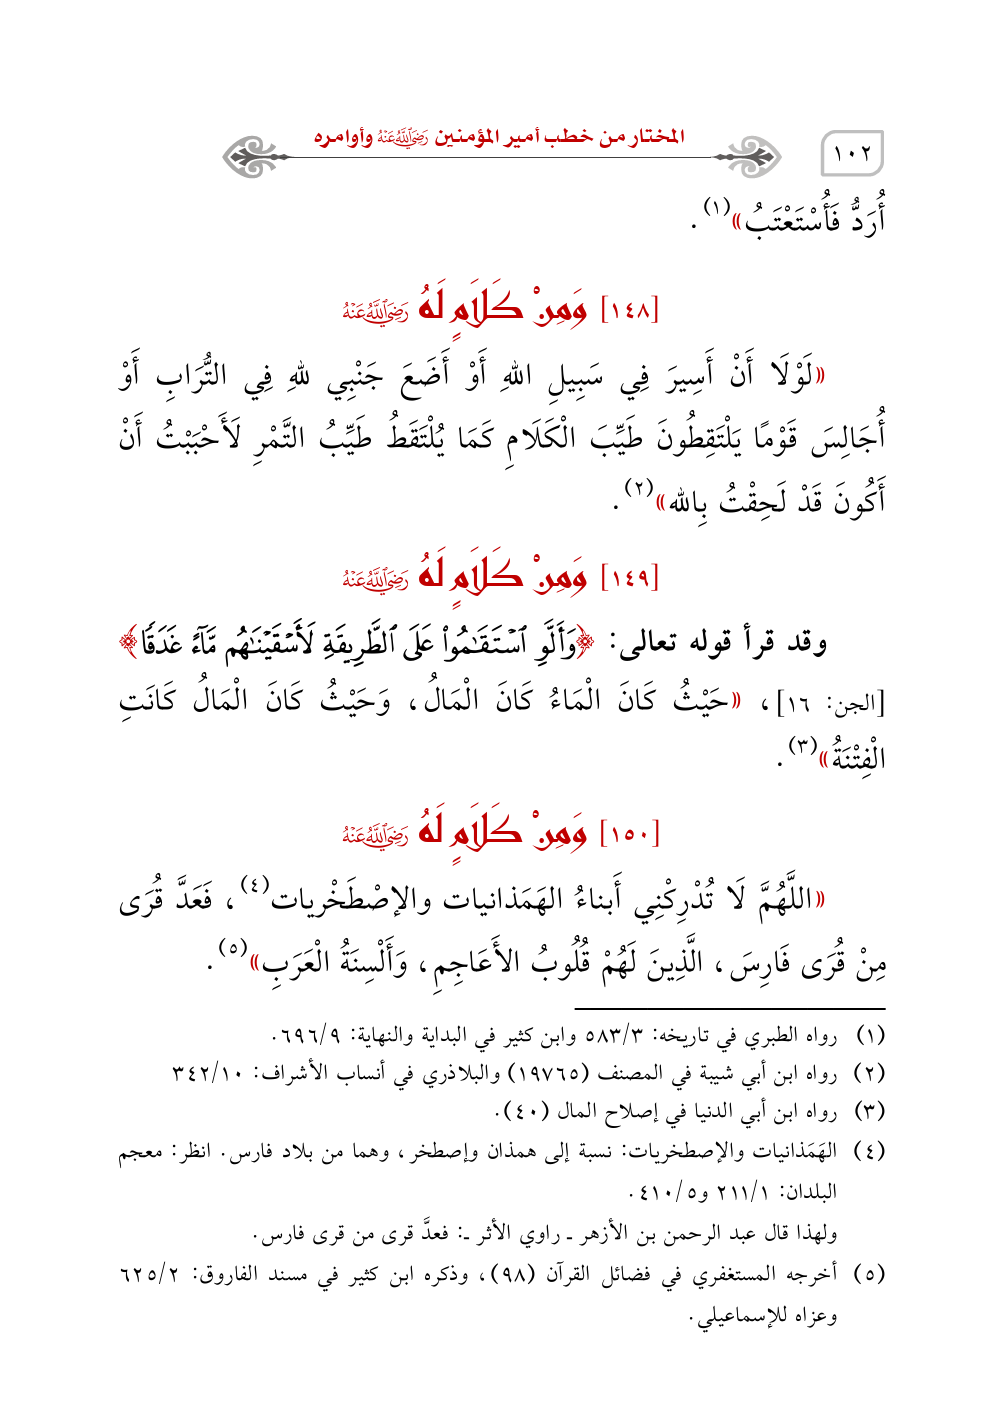 ١٠٢
المختار من خطب أمير المؤمنين رَضِيَ اللَّهُ عَنْهُ وأوامره
أُرَدُّ فَأُسْتَعْتَبُ»(١).
[١٤٨] وَمِنْ كَلَامٍ لَهُ رَضِيَ اللَّهُ عَنْهُ
«لَوْلَا أَنْ أَسِيرَ فِي سَبِيلِ اللهِ أَوْ أَضَعَ جَنْبِي للهِ فِي التُّرَابِ أَوْ
أُجَالِسَ قَوْمًا يَلْتَقِطُونَ طَيِّبَ الْكَلَامِ كَمَا يُلْتَقَطُ طَيِّبُ التَّمْرِ لَأَحْبَبْتُ أَنْ
أَكُونَ قَدْ لَحِقْتُ بِالله»(٢).
[١٤٩] وَمِنْ كَلَامٍ لَهُ رَضِيَ اللَّهُ عَنْهُ
وقد قرأ قوله تعالى: ﴿وَأَلَّوِ ٱسْتَقَٰمُوا۟ عَلَى ٱلطَّرِيقَةِ لَأَسْقَيْنَٰهُم مَّآءً غَدَقًا﴾
[الجن: ١٦]، «حَيْثُ كَانَ الْمَاءُ كَانَ الْمَالُ، وَحَيْثُ كَانَ الْمَالُ كَانَتِ
الْفِتْنَةُ»(٣).
[١٥٠] وَمِنْ كَلَامٍ لَهُ رَضِيَ اللَّهُ عَنْهُ
«اللَّهُمَّ لَا تُدْرِكْنِي أَبناءُ الهَمَذانيات والإصْطَخْريات(٤)، فَعَدَّ قُرَى
مِنْ قُرَى فَارِسَ، الَّذِينَ لَهُمْ قُلُوبُ الأَعَاجِمِ، وَأَلْسِنَةُ الْعَرَبِ»(٥).
(١) رواه الطبري في تاريخه: ٥٨٣/٣ وابن كثير في البداية والنهاية: ٦٩٦/٩.
(٢) رواه ابن أبي شيبة في المصنف (١٩٧٦٥) والبلاذري في أنساب الأشراف: ٣٤٢/١٠
(٣) رواه ابن أبي الدنيا في إصلاح المال (٤٠).
(٤) الهَمَذانيات والإصطخريات: نسبة إلى همذان وإصطخر، وهما من بلاد فارس. انظر: معجم
البلدان: ٢١١/١ و٤١٠/٥.
ولهذا قال عبد الرحمن بن الأزهر ـ راوي الأثر ـ: فعدَّ قرى من قرى فارس.
(٥) أخرجه المستغفري في فضائل القرآن (٩٨)، وذكره ابن كثير في مسند الفاروق: ٦٢٥/٢
وعزاه للإسماعيلي.